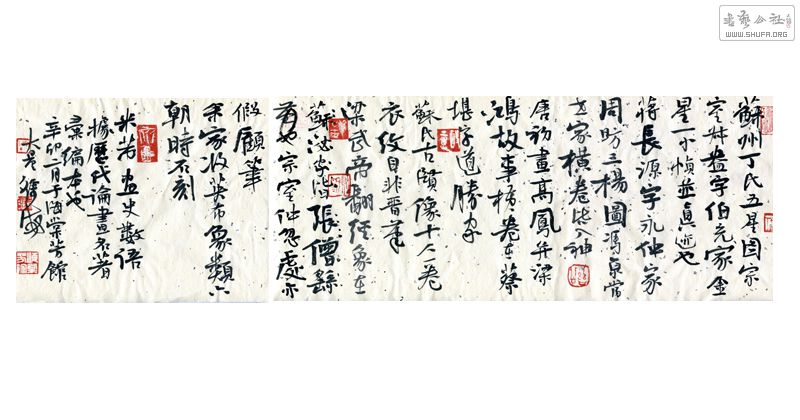 蘇州丁氏五星因宗
室叔盎字伯充家金
星一小幀並真迹也
蔣長源字永仲家
周昉三楊圖馮京當
世家橫卷皆入神
唐初畫高鳳并梁
鴻故事橫卷在蔡
堪字道勝家
蘇氏古賢像十人一卷
衣紋自非晉筆
梁武帝翻經象在
蘇泌家
張僧繇
筆也宗室仲忽處亦
假顧筆
余家收英布象類六
朝時石刻
米芾画史數語
據歷代論畫名著
彙編本也
辛卯二月于海棠芳館
書藝公社
WWW.SHUFA.ORG